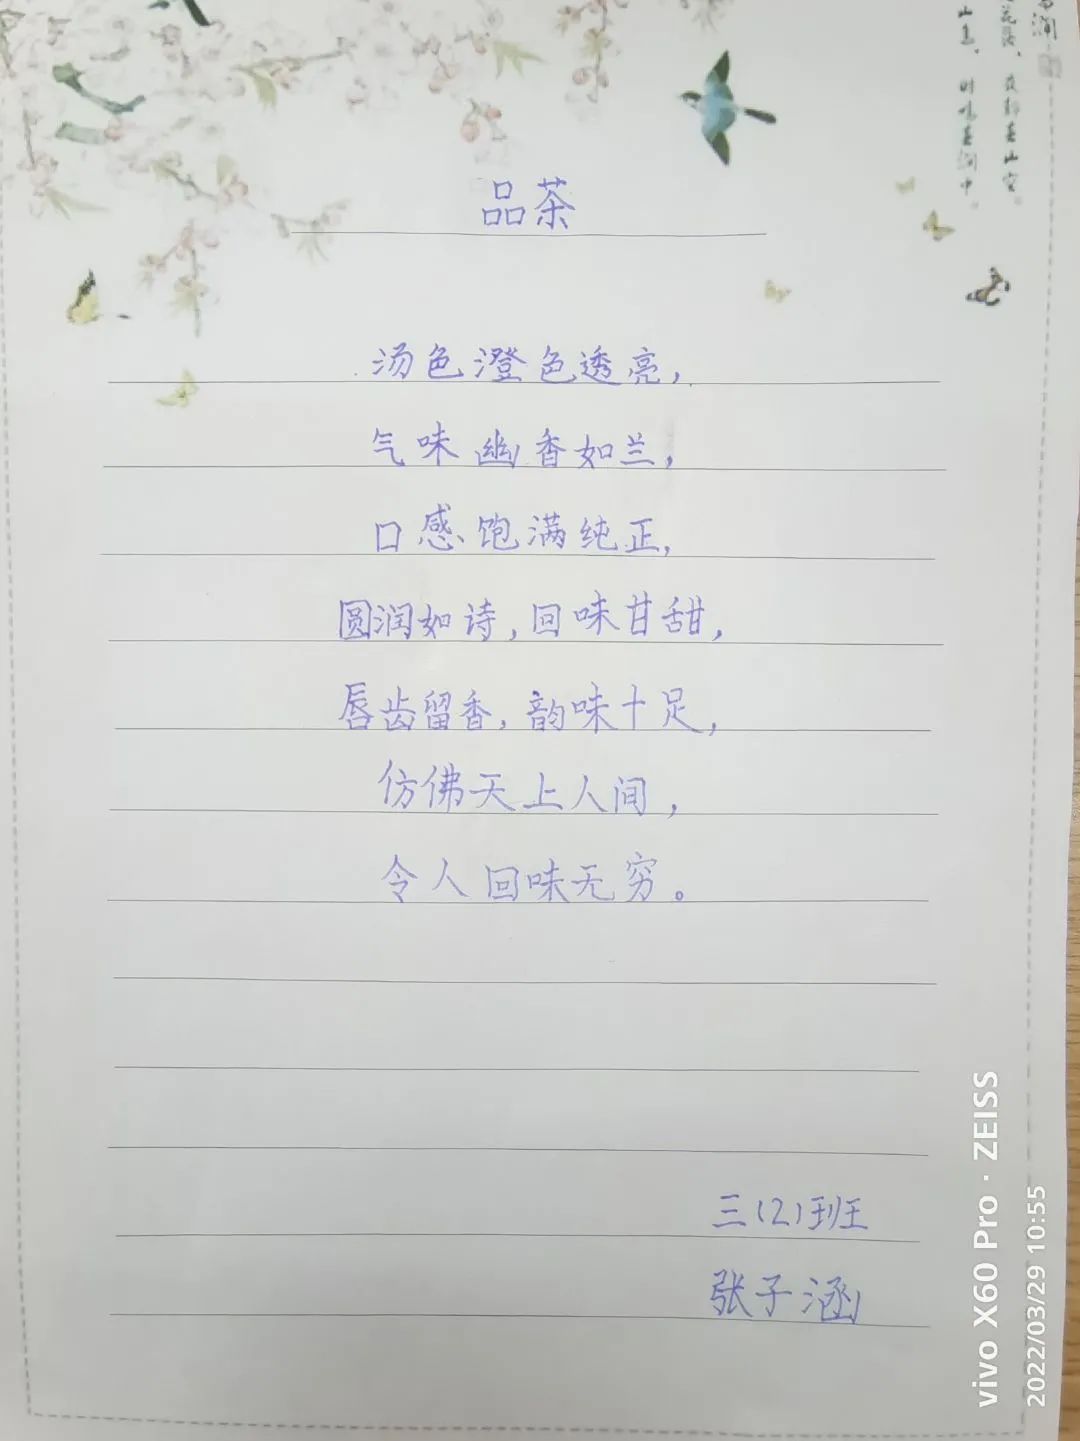 品茶
汤色澄色透亮，
气味幽香如兰，
口感饱满纯正，
圆润如诗，回味甘甜，
唇齿留香，韵味十足，
仿佛天上人间，
令人回味无穷。
三（2）班
张子涵
vivo X60 Pro · ZEISS
2022/03/29 10:55